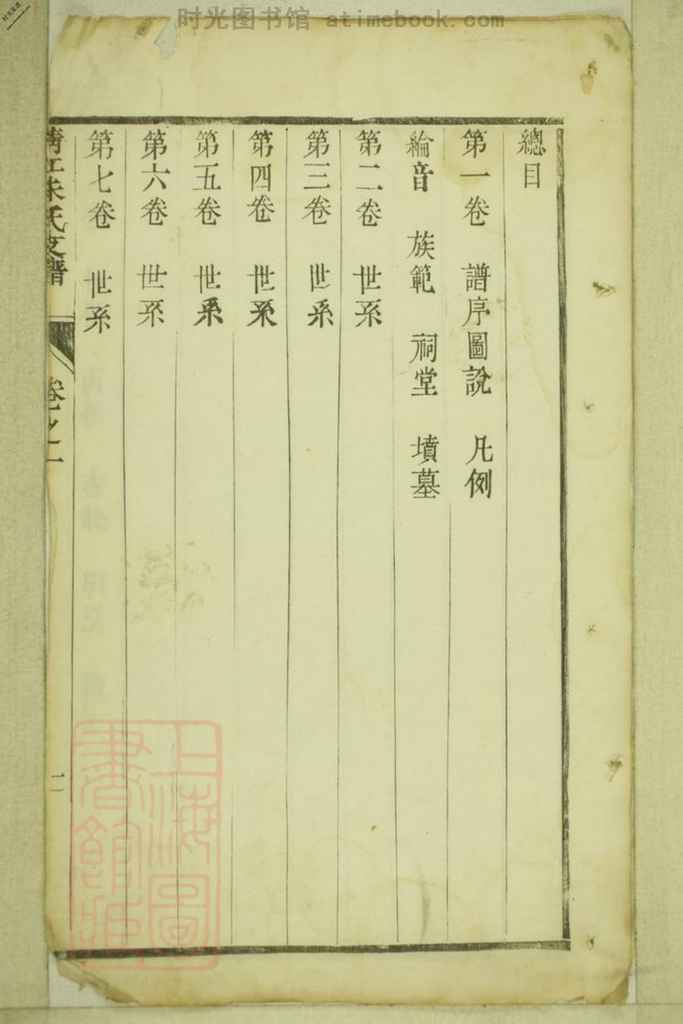 时光图书馆 atimebook.com
總目
第一卷 譜序圖說 凡例
綸音 族範 祠堂 墳墓
第二卷 世系
第三卷 世系
第四卷 世系
第五卷 世系
第六卷 世系
第七卷 世系
朱氏支譜
卷之一
二
上海圖書館藏